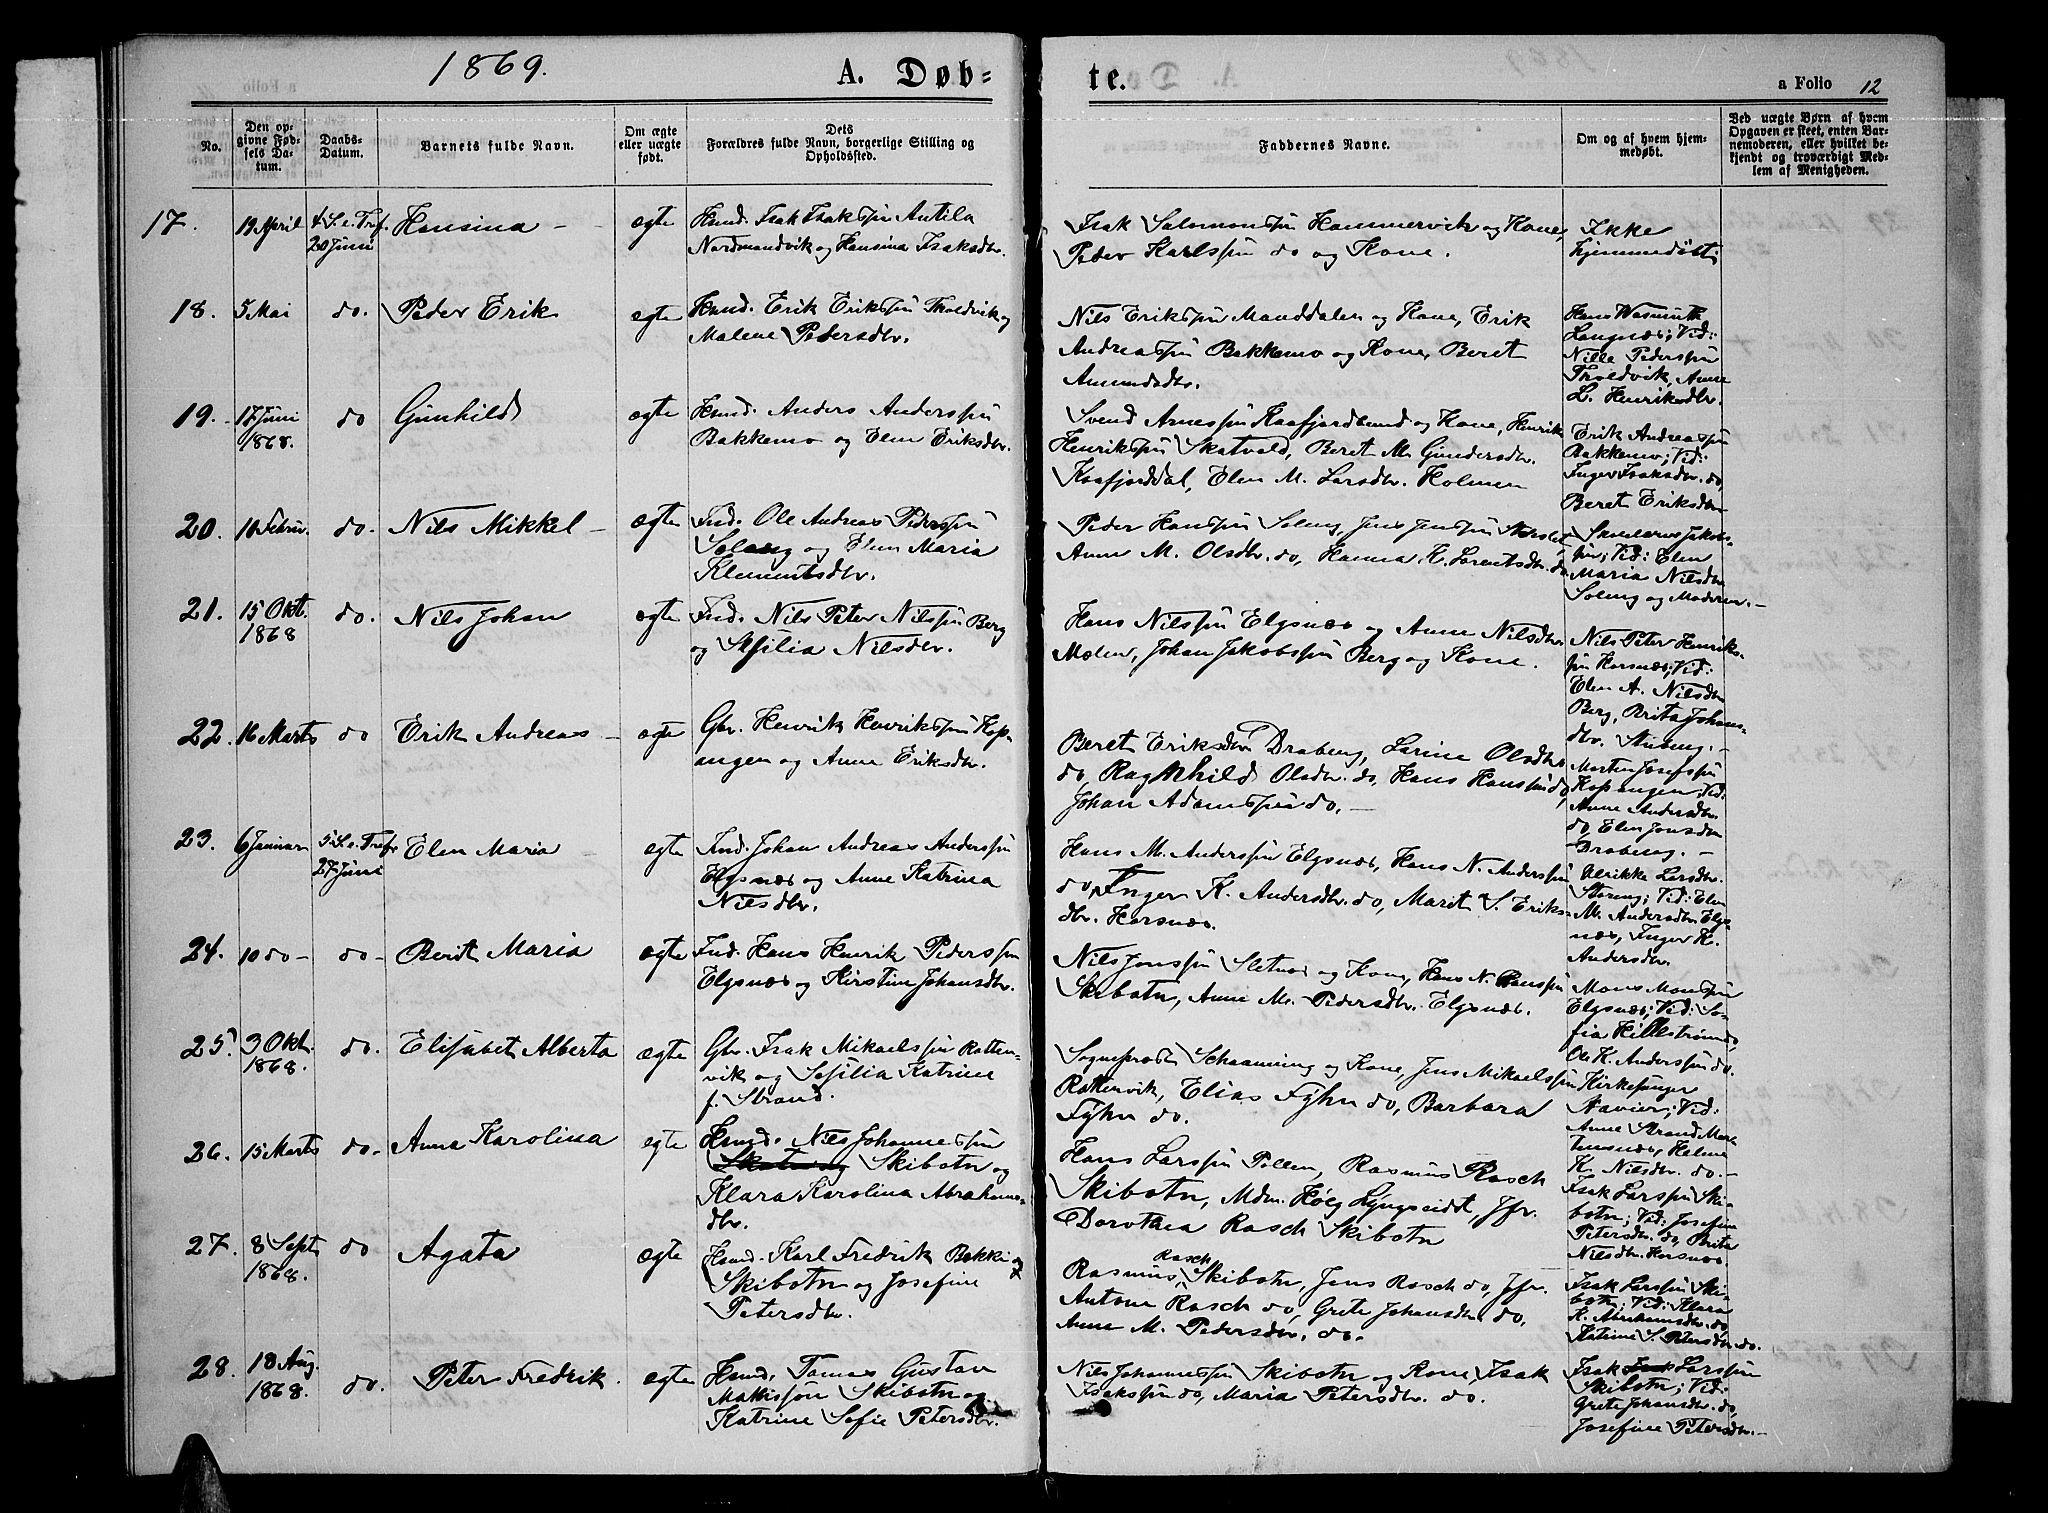 1869.
A. Døb=
te.
a Folio 12
No.
Den op-
givne Fød-
sels Da-
tum.
Daabs-
Datum.
Barnets fulde Navn.
Om ægte
eller uægte
født.
Dets
Forældres fulde Navn, borgerlige Stilling og
Opholdssted.
Faddernes Navne.
Om og af hvem hjem-
medøbt.
Ved uægte Børn af hvem
Opgaven er skeet, enten Bar-
nemoderen, eller hvilket be-
kjendt og troværdigt Med-
lem af Menigheden.
17. 19 April 4 S. e. Tref.
20 Juni
Hansina - ægte
Hsmd. Isak Isakssøn Antila
Nordmandvik og Hansina Isaksdtr.
Isak Salomonssøn Hammervik og Kone,
Peder Karlssøn do og Kone.
Ikke
hjemmedøbt
18. 5 Mai do. Peder Erik ægte
Hsmd. Erik Erikssøn Tholdvik og
Malene Pedersdtr.
Nils Erikssøn Manddalen og Kone, Erik
Andreassøn Bakkemo og Kone, Beret
Amundsdtr.
Hans Wasmuth
Langnæs; Vid:
Nille Pederssøn
Tholdvik, Anne
L. Henriksdtr.
19. 17 Juni
1868. do Gunhild ægte
Hsmd. Anders Anderssøn
Bakkemo og Elen Eriksdtr.
Svend Arnessøn Kaafjordbund og Kone, Henrik
Henrikssøn Skatvold, Beret M. Gundersdtr.
Kaafjorddal, Elen M. Larsdtr. Holmen
Erik Andreassøn
Bakkemo; Vid:
Inger Isaksdtr. do
Beret Eriksdtr.
20. 10 Febru. do. Nils Mikkel - ægte
Ind. Ole Andreas Pederssøn
Soleng og Elen Maria
Klementsdtr.
Peder Hanssøn Soleng, Jens Jenssøn
Anne M. Olsdtr. do, Hanna K. Lorentsdtr. do.
Jakobs-
søn; Vid: Elen
Maria Nilsdtr.
Soleng og Moderen. -
21. 15 Okt.
1868 do. Nils Johan ægte
Ind. Nils Peter Nilssøn Berg
og Sesilia Nilsdtr.
Hans Nilssøn Elgsnæs og Anne Nilsdtr.
Mælen, Johan Jakobssøn Berg og Kone.
Nils Peter Henriks-
søn Horsnæs; Vid:
Elen A. Nilsdtr.
Berg, Brita Johans-
dtr. Stubeng. -
22. 16 Marts do Erik Andreas - ægte
Gbr. Henrik Henrikssøn Kop-
angen og Anne Eriksdtr.
Beret Eriksdtr. Drabeng, Larine Olsdtr.
do, Ragnhild Olsdtr. do, Hans Hanssøn do,
Johan Adamssøn do. -
Morten Josefssøn
Kopangen; Vid:
Anne Andersdtr.
do, Elen Jonsdtr.
Drabeng. -
23. 6 Januar 5 S. e. Tref.
27 Juni
Elen Maria - ægte
Ind. Johan Andreas Anderssøn
Elgsnæs og Anne Katrina
Nilsdtr.
Hans M. Anderssøn Elgsnæs, Hans N. Anderssøn
do, Inger K. Andersdtr. do, Marit S. Eriks-
dtr. Horsnæs.
Ulrikke Larsdtr.
Storeng; Vid: Elen
M. Andersdtr. Elgs-
næs, Inger K.
Andersdtr.
24. 10 do - do - Berit Maria ægte
Ind. Hans Henrik Pederssøn
Elgsnæs og Kirstine Johansdtr.
Nils Jonssøn Sletnes og Kone, Hans N. Hanssøn
Skibotn, Anne M. Pedersdtr. Elgsnæs.
Mons Monssøn
Elgsnæs; Vid: So-
fia Hillestrøm do,
Ole K. Anderssøn do.
25. 3 Okt.
1868. do. Elisabet Alberta ægte
Gbr. Isak Mikaelssøn Rotten-
vik og Sesilia Katrine
f. Strand.
Sogneprest Schaanning og Kone, Jens Mikaelssøn
Rottenvik, Elias Fyhn do, Barbara
Fyhn do.
Kirkesanger
Navier; Vid:
Anne Strand
Helene
K. Nilsdtr. do. -
26. 15 Marts do. Anna Karolina ægte
Hsmd. Nils Johannessøn
Skibotn og
Klara Karolina Abrahams-
dtr.
Hans Larssøn Pollen, Rasmus Rasch
Skibotn, Mdm. Høeg Lyngseidt, Jfr.
Dorothea Rasch Skibotn
Isak Larssøn Ski-
botn; Vid: Josefine
Petersdtr. do, Brita
Nilsdtr. Horsnæs.
27. 8 Septr.
1868. do Agata ægte
Hsmd. Karl Fredrik Bakki
Skibotn og Josefine
Petersdtr.
Rasmus Rasch Skibotn, Jens Rasch do, Jfr.
Antone Rasch do, Grete Johansdtr. do,
Anne M. Pedersdtr. do.
Isak Larssøn Ski-
botn; Vid: Klara
K. Abrahamsdtr. do,
Katrine S. Petersdtr. do.
28. 18 Aug.
1868. do. Peter Fredrik. ægte
Hsmd. Tomas Gustav
Mattissøn Skibotn og
Katrine Sofie Petersdtr.
Nils Johannessøn Skibotn og Kone, Isak
Isakssøn do, Maria Petersdtr. do.
Isak Larssøn
Skibotn; Vid:
Grete Johansdtr. do,
Josefine Petersdtr. -